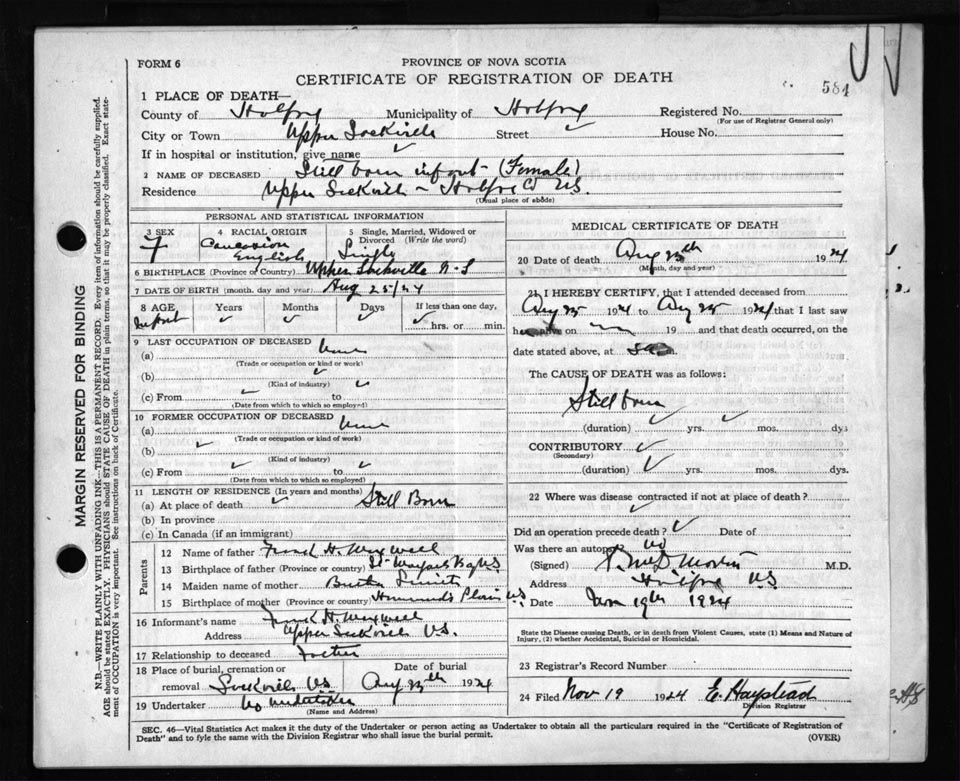 FORM 6
PROVINCE OF NOVA SCOTIA
CERTIFICATE OF REGISTRATION OF DEATH
584
1 PLACE OF DEATH—
County of Halifax Municipality of Halifax Registered No.
(For use of Registrar General only)
City or Town Upper Sackville Street ✓ House No.
If in hospital or institution, give name ✓
2 NAME OF DECEASED Still born infant (Female)
Residence Upper Sackville - Halifax Co N.S.
(Usual place of abode)
PERSONAL AND STATISTICAL INFORMATION
3 SEX F
4 RACIAL ORIGIN Caucasian English
5 Single, Married, Widowed or Divorced (Write the word) Single
6 BIRTHPLACE (Province or Country) Upper Sackville N-S
7 DATE OF BIRTH (month, day and year) Aug 25/24
8 AGE Years Months Days If less than one day,
Infant ✓ ✓ ✓ ✓ hrs. or min.
9 LAST OCCUPATION OF DECEASED
(a) None
(Trade or occupation or kind of work)
(b) ✓
(Kind of industry)
(c) From to
(Date from which to which so employed)
10 FORMER OCCUPATION OF DECEASED
(a) None
(Trade or occupation or kind of work)
(b) ✓
(Kind of industry)
(c) From ✓ to ✓
(Date from which to which so employed)
11 LENGTH OF RESIDENCE (In years and months)
(a) At place of death Still Born
(b) In province
(c) In Canada (if an immigrant)
Parents
12 Name of father Frank H. Maxwell
13 Birthplace of father (Province or country) St. Margarets Bay N.S.
14 Maiden name of mother Smith
15 Birthplace of mother (Province or country) Hammonds Plains N.S
16 Informant's name Frank H. Maxwell
Address Upper Sackville N.S.
17 Relationship to deceased Father
18 Place of burial, cremation or removal Sackville N.S.
Date of burial Aug 25th 1924
19 Undertaker No undertaker
(Name and Address)
MEDICAL CERTIFICATE OF DEATH
20 Date of death Aug 25th 1924
(Month, day and year)
21 I HEREBY CERTIFY, that I attended deceased from
Aug 25 1924 to Aug 25 1924 that I last saw
h alive on 19 and that death occurred, on the
date stated above, at m.
The CAUSE OF DEATH was as follows:
Still born
(duration) ✓ yrs. ✓ mos. dys
CONTRIBUTORY ✓
(Secondary)
(duration) ✓ yrs. mos. dys.
22 Where was disease contracted if not at place of death?
✓
Did an operation precede death? ✓ Date of
Was there an autopsy No
(Signed) M.D.
Address Halifax N.S
Date 19th 1924
State the Disease causing Death, or in death from Violent Causes, state (1) Means and Nature of Injury, (2) whether Accidental, Suicidal or Homicidal.
23 Registrar's Record Number
24 Filed Nov 19 1924 E. Haystead
Division Registrar
SEC. 46—Vital Statistics Act makes it the duty of the Undertaker or person acting as Undertaker to obtain all the particulars required in the "Certificate of Registration of
Death" and to fyle the same with the Division Registrar who shall issue the burial permit. (OVER)
MARGIN RESERVED FOR BINDING
N.B.—WRITE PLAINLY WITH UNFADING INK—THIS IS A PERMANENT RECORD. Every item of information should be carefully supplied.
AGE should be stated EXACTLY. PHYSICIANS should STATE CAUSE OF DEATH in plain terms, so that it may be properly classified. Exact statement of OCCUPATION is very important. See instructions on back of Certificate.